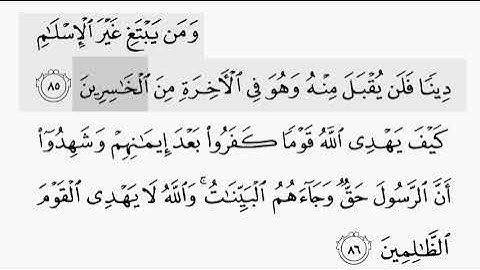 وَمَن يَبْتَغِ غَيْرَ ٱلْإِسْلَٰمِ
دِينًا فَلَن يُقْبَلَ مِنْهُ وَهُوَ فِي ٱلْأَخِرَةِ مِنَ ٱلْخَٰسِرِينَ ٨٥
كَيْفَ يَهْدِي ٱللَّهُ قَوْمًا كَفَرُوا۟ بَعْدَ إِيمَٰنِهِمْ وَشَهِدُوٓا۟
أَنَّ ٱلرَّسُولَ حَقٌّ وَجَآءَهُمُ ٱلْبَيِّنَٰتُ ۚ وَٱللَّهُ لَا يَهْدِي ٱلْقَوْمَ
ٱلظَّٰلِمِينَ ٨٦